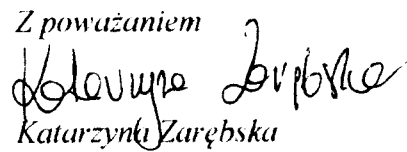 Z poważaniem
Katarzyna Zarębska
Katarzyna Zarębska